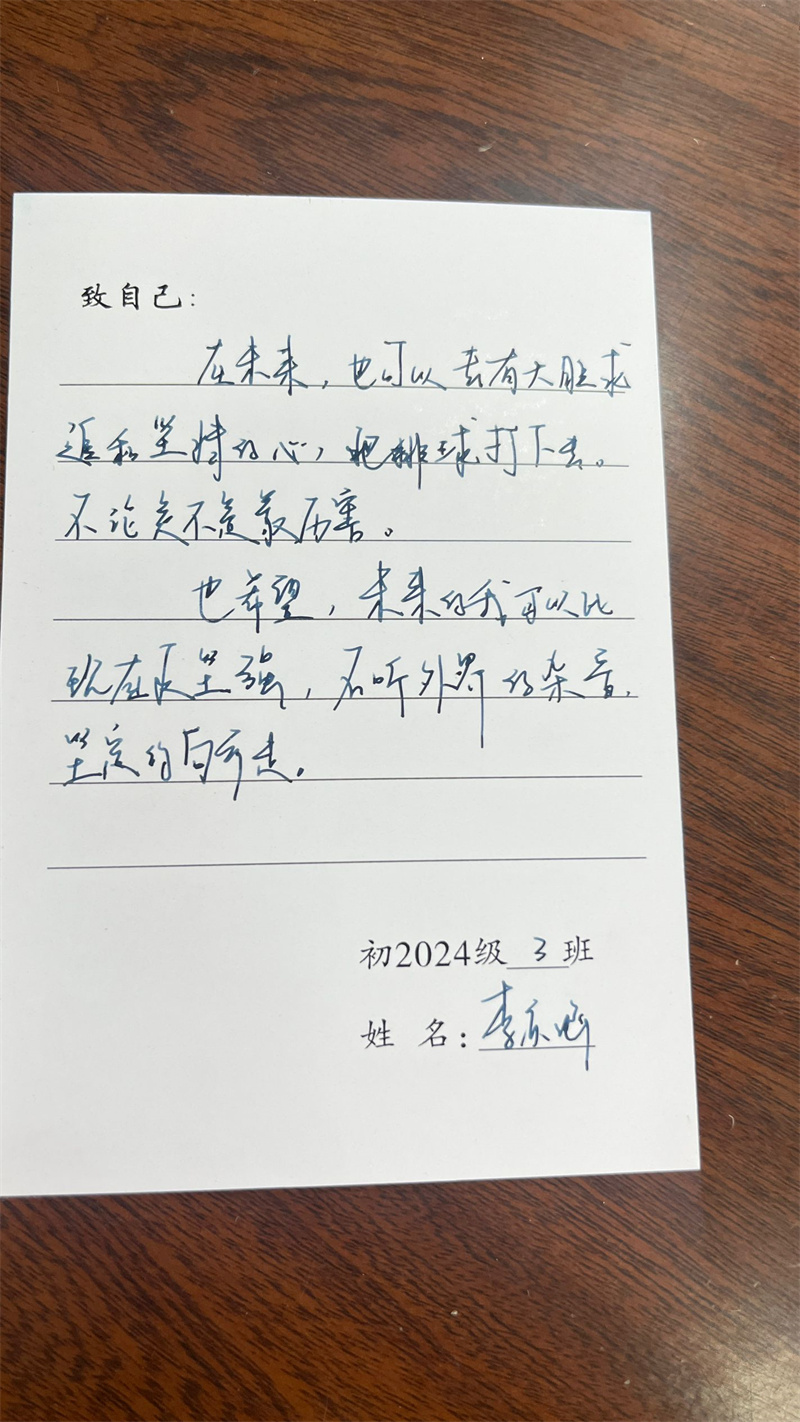 致自己：
在未来，也可以去有大胆求
追和坚持的心，把排球打下去。
不论是不是最厉害。
也希望，未来的我可以比
现在更坚强，不听外界的杂音，
坚定的向前走。
初2024级 3 班
姓 名：李